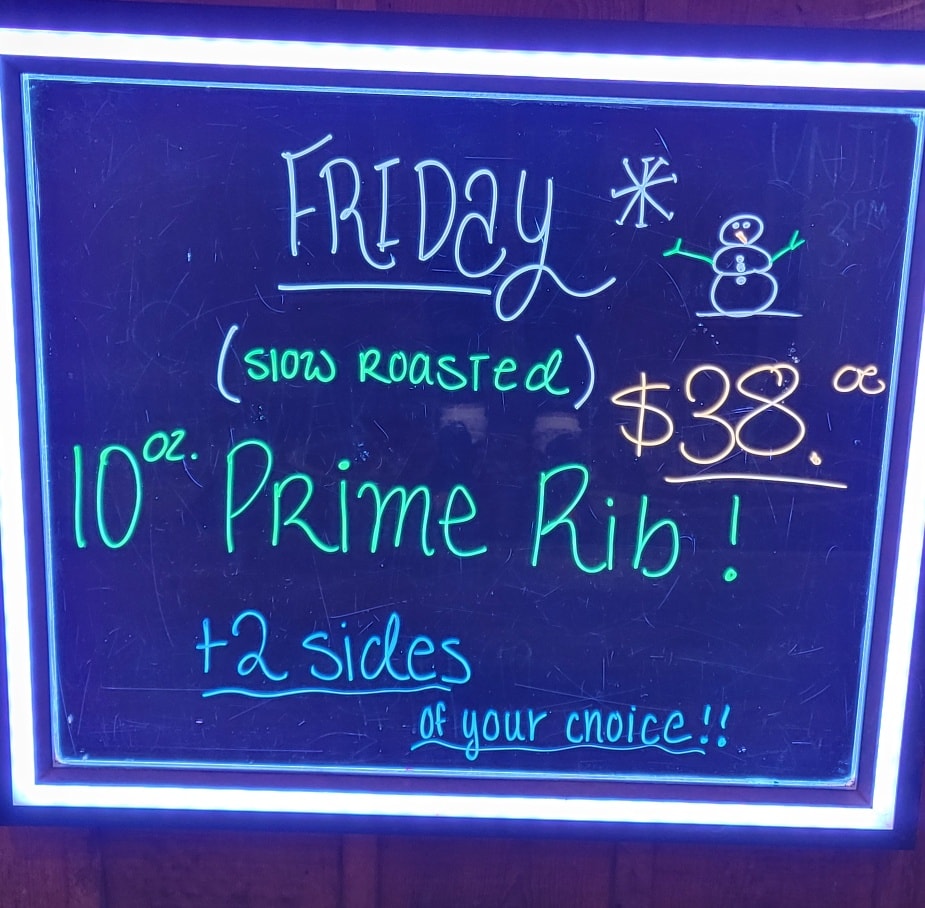 FRIDAY
(SLOW ROASTED)
$38.00
10 oz. PRIME RIB!
+2 sides
of your choice!!